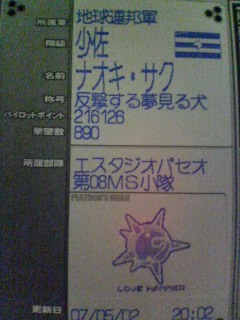 所属軍 地球連邦軍
階級 少佐
名前 ナオキ・サク
称号 反撃する夢見る犬
パイロットポイント 216126
撃墜数 890
所属部隊 エスタジオパセオ
第08MS小隊
PLATOON'S MARK
LOVE HAMMER
更新日 07/05/02 20:02